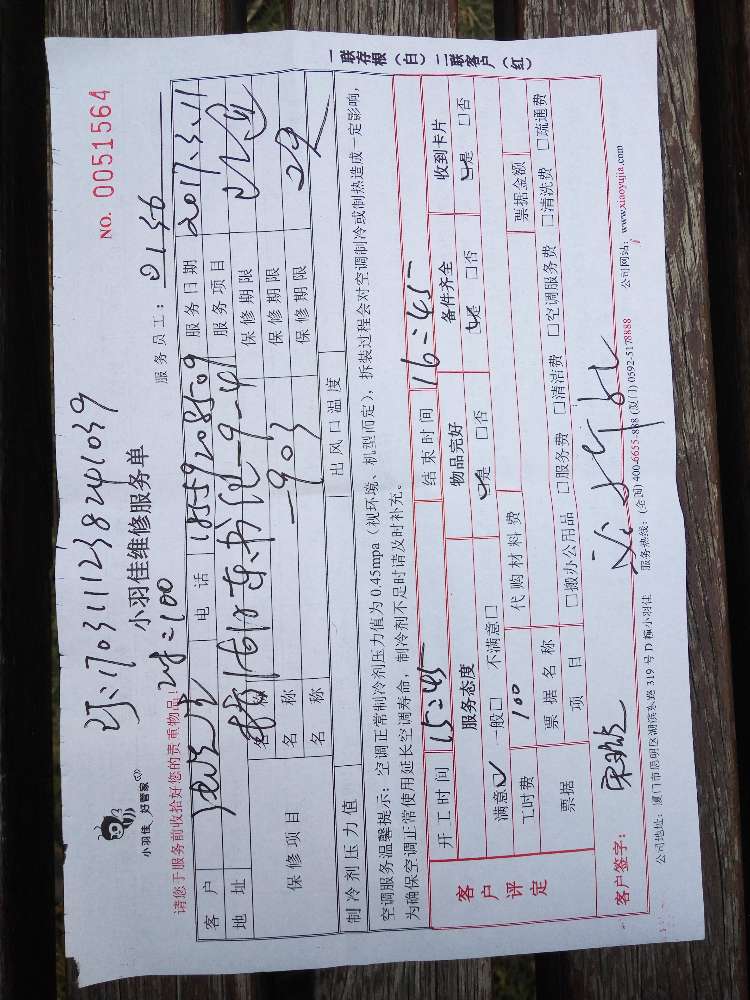 NO. 0051564
1703111238241039
小羽佳 好管家
小羽佳维修服务单
服务员工: 0136
请您于服务前收拾好您的贵重物品!
=100
客户 电话 18559208509 服务日期 2017.3.11
地址 服务项目
保修项目 名称 903 保修期限
名称 保修期限
名称 保修期限
制冷剂压力值 出风口温度
空调服务温馨提示: 空调正常制冷剂压力值为 0.45mpa (视环境、机型而定), 拆装过程会对空调制冷或制热造成一定影响,
为确保空调正常使用延长空调寿命, 制冷剂不足时请及时补充。
客户评定 开工时间 15:45 结束时间 16:45
服务态度 物品完好 备件齐全 收到卡片
满意☑ 一般□ 不满意□ ☑是 □否 ☑是 □否 ☑是 □否
工时费 100 代购材料费 票据金额
票据 票据名称
项目 □搬办公用品 □服务费 □清洁费 □空调服务费 □清洗费 □疏通费
客户签字:
公司地址: 厦门市思明区湖滨东路 319 号 D 幢小羽佳 服务热线: (全国) 400-6655-888 (厦门) 0592-5178888 公司网站: www.xiaoyujia.com
一联存根 (白) 二联客户 (红)